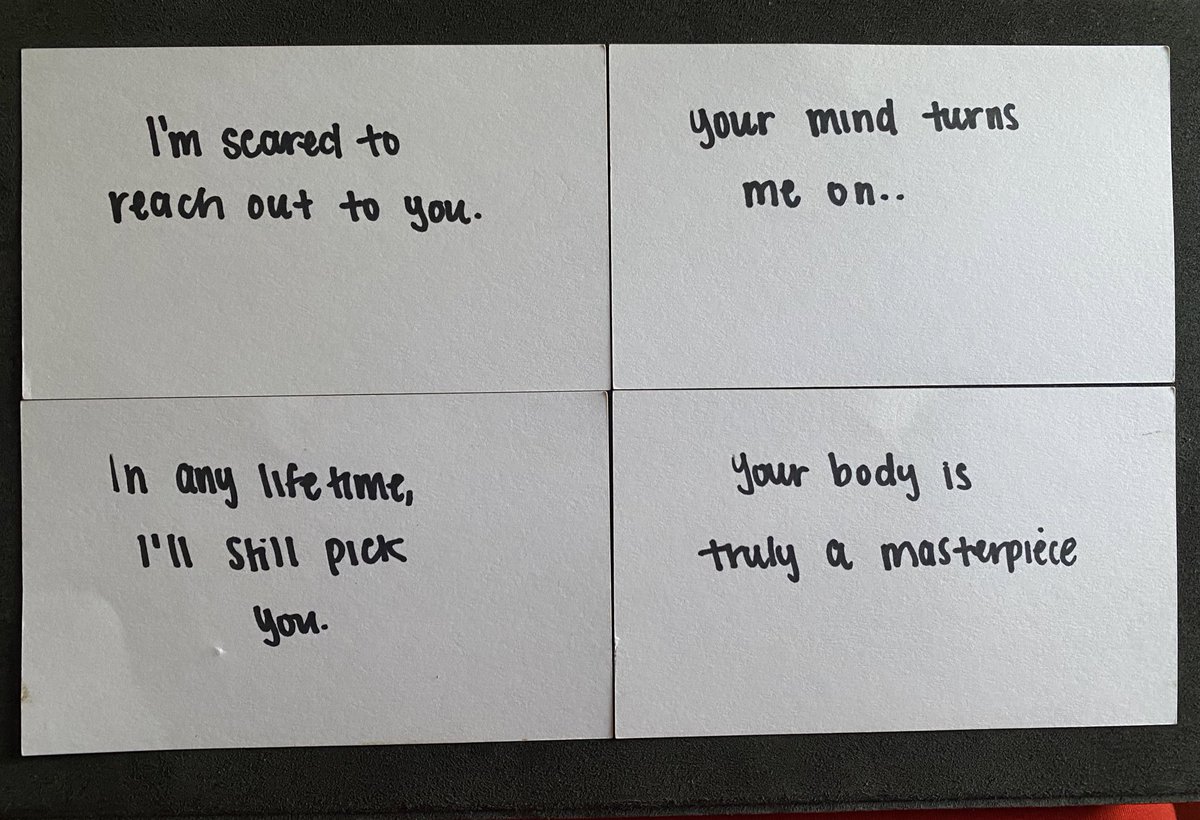 I'm scared to
reach out to you.
your mind turns
me on..
In any lifetime,
I'll still pick
you.
your body is
truly a masterpiece